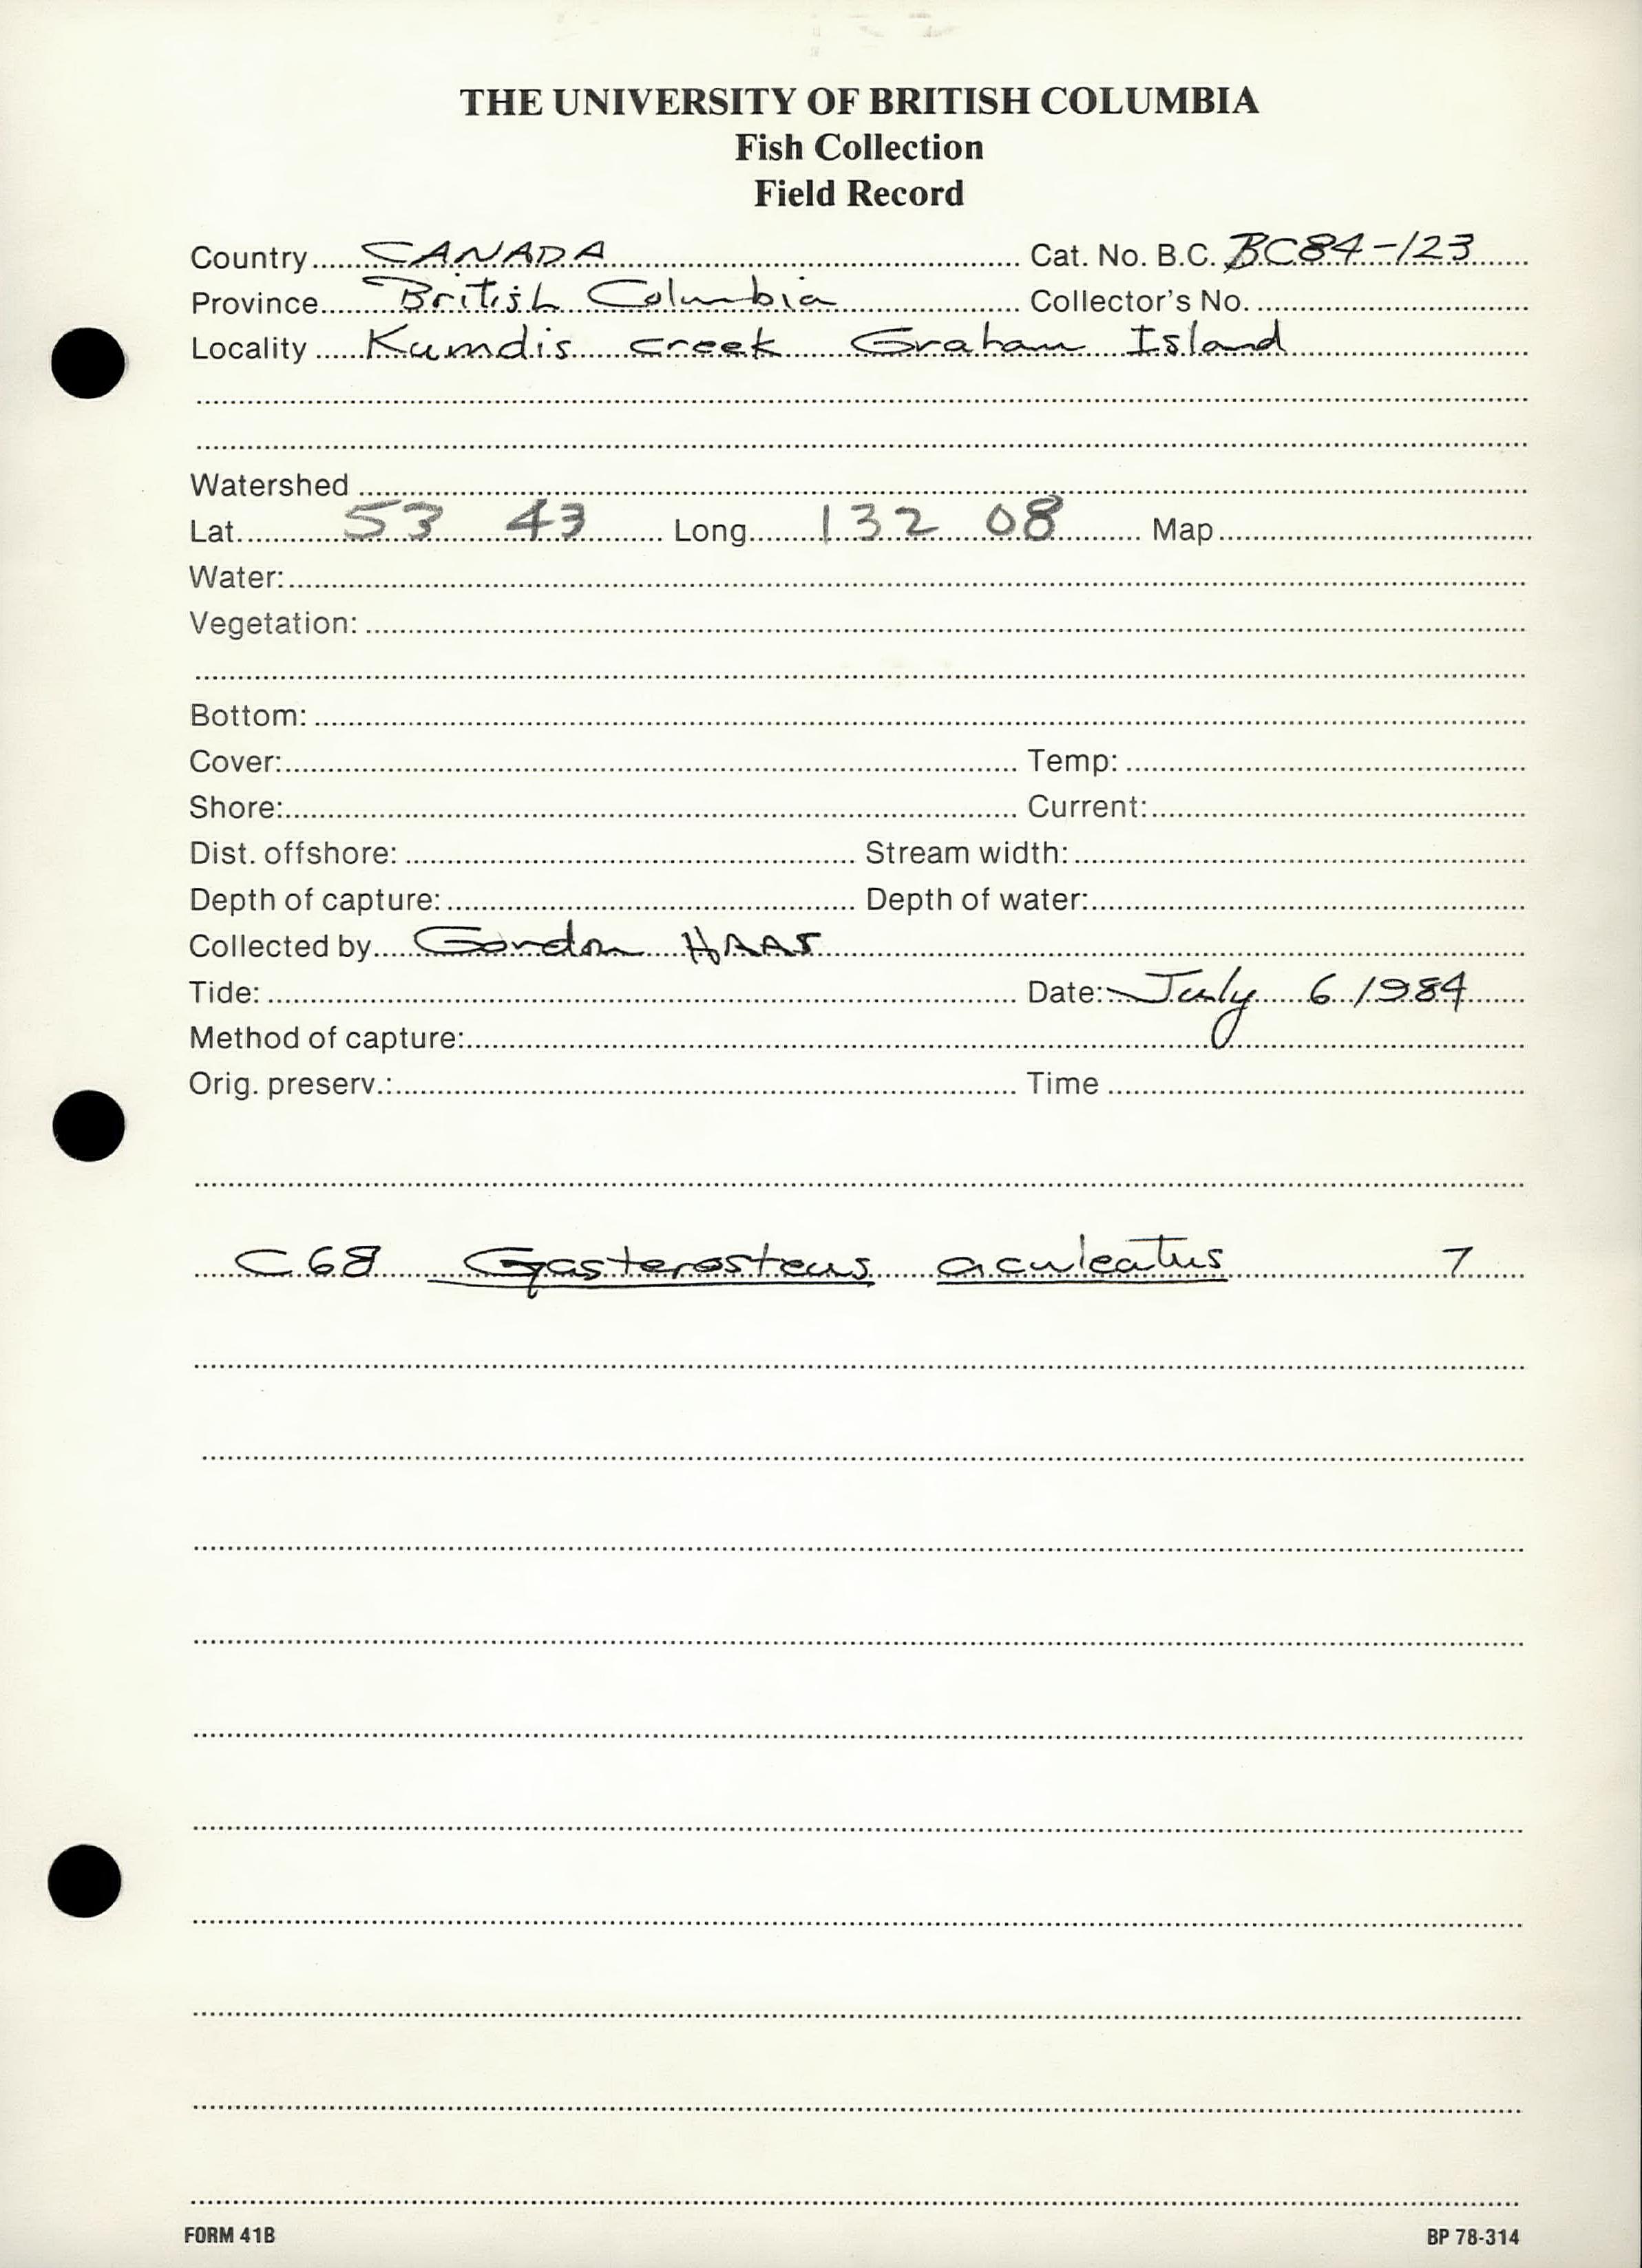 THE UNIVERSITY OF BRITISH COLUMBIA
Fish Collection
Field Record
Country CANADA Cat. No. B.C. BC84-123
Province British Columbia Collector's No.
Locality Kumdis creek Graham Island
Watershed
Lat. 53 43 Long. 132 08 Map
Water:
Vegetation:
Bottom:
Cover: Temp:
Shore: Current:
Dist. offshore: Stream width:
Depth of capture: Depth of water:
Collected by Gordon HAAS
Tide: Date: July 6 1984
Method of capture:
Orig. preserv.: Time
C68 Gasterosteus aculeatus 7
FORM 41B BP 78-314